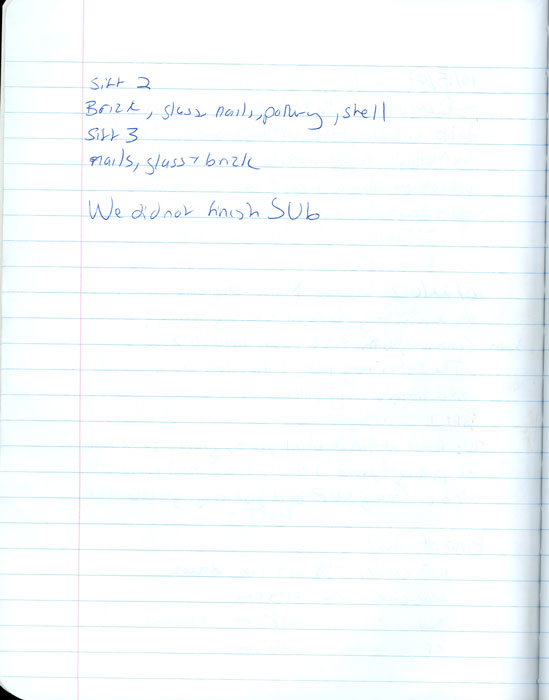 Sift 2
Brick, glass nails, pottery, shell
Sift 3
nails, glass + brick
We did not finish SUb